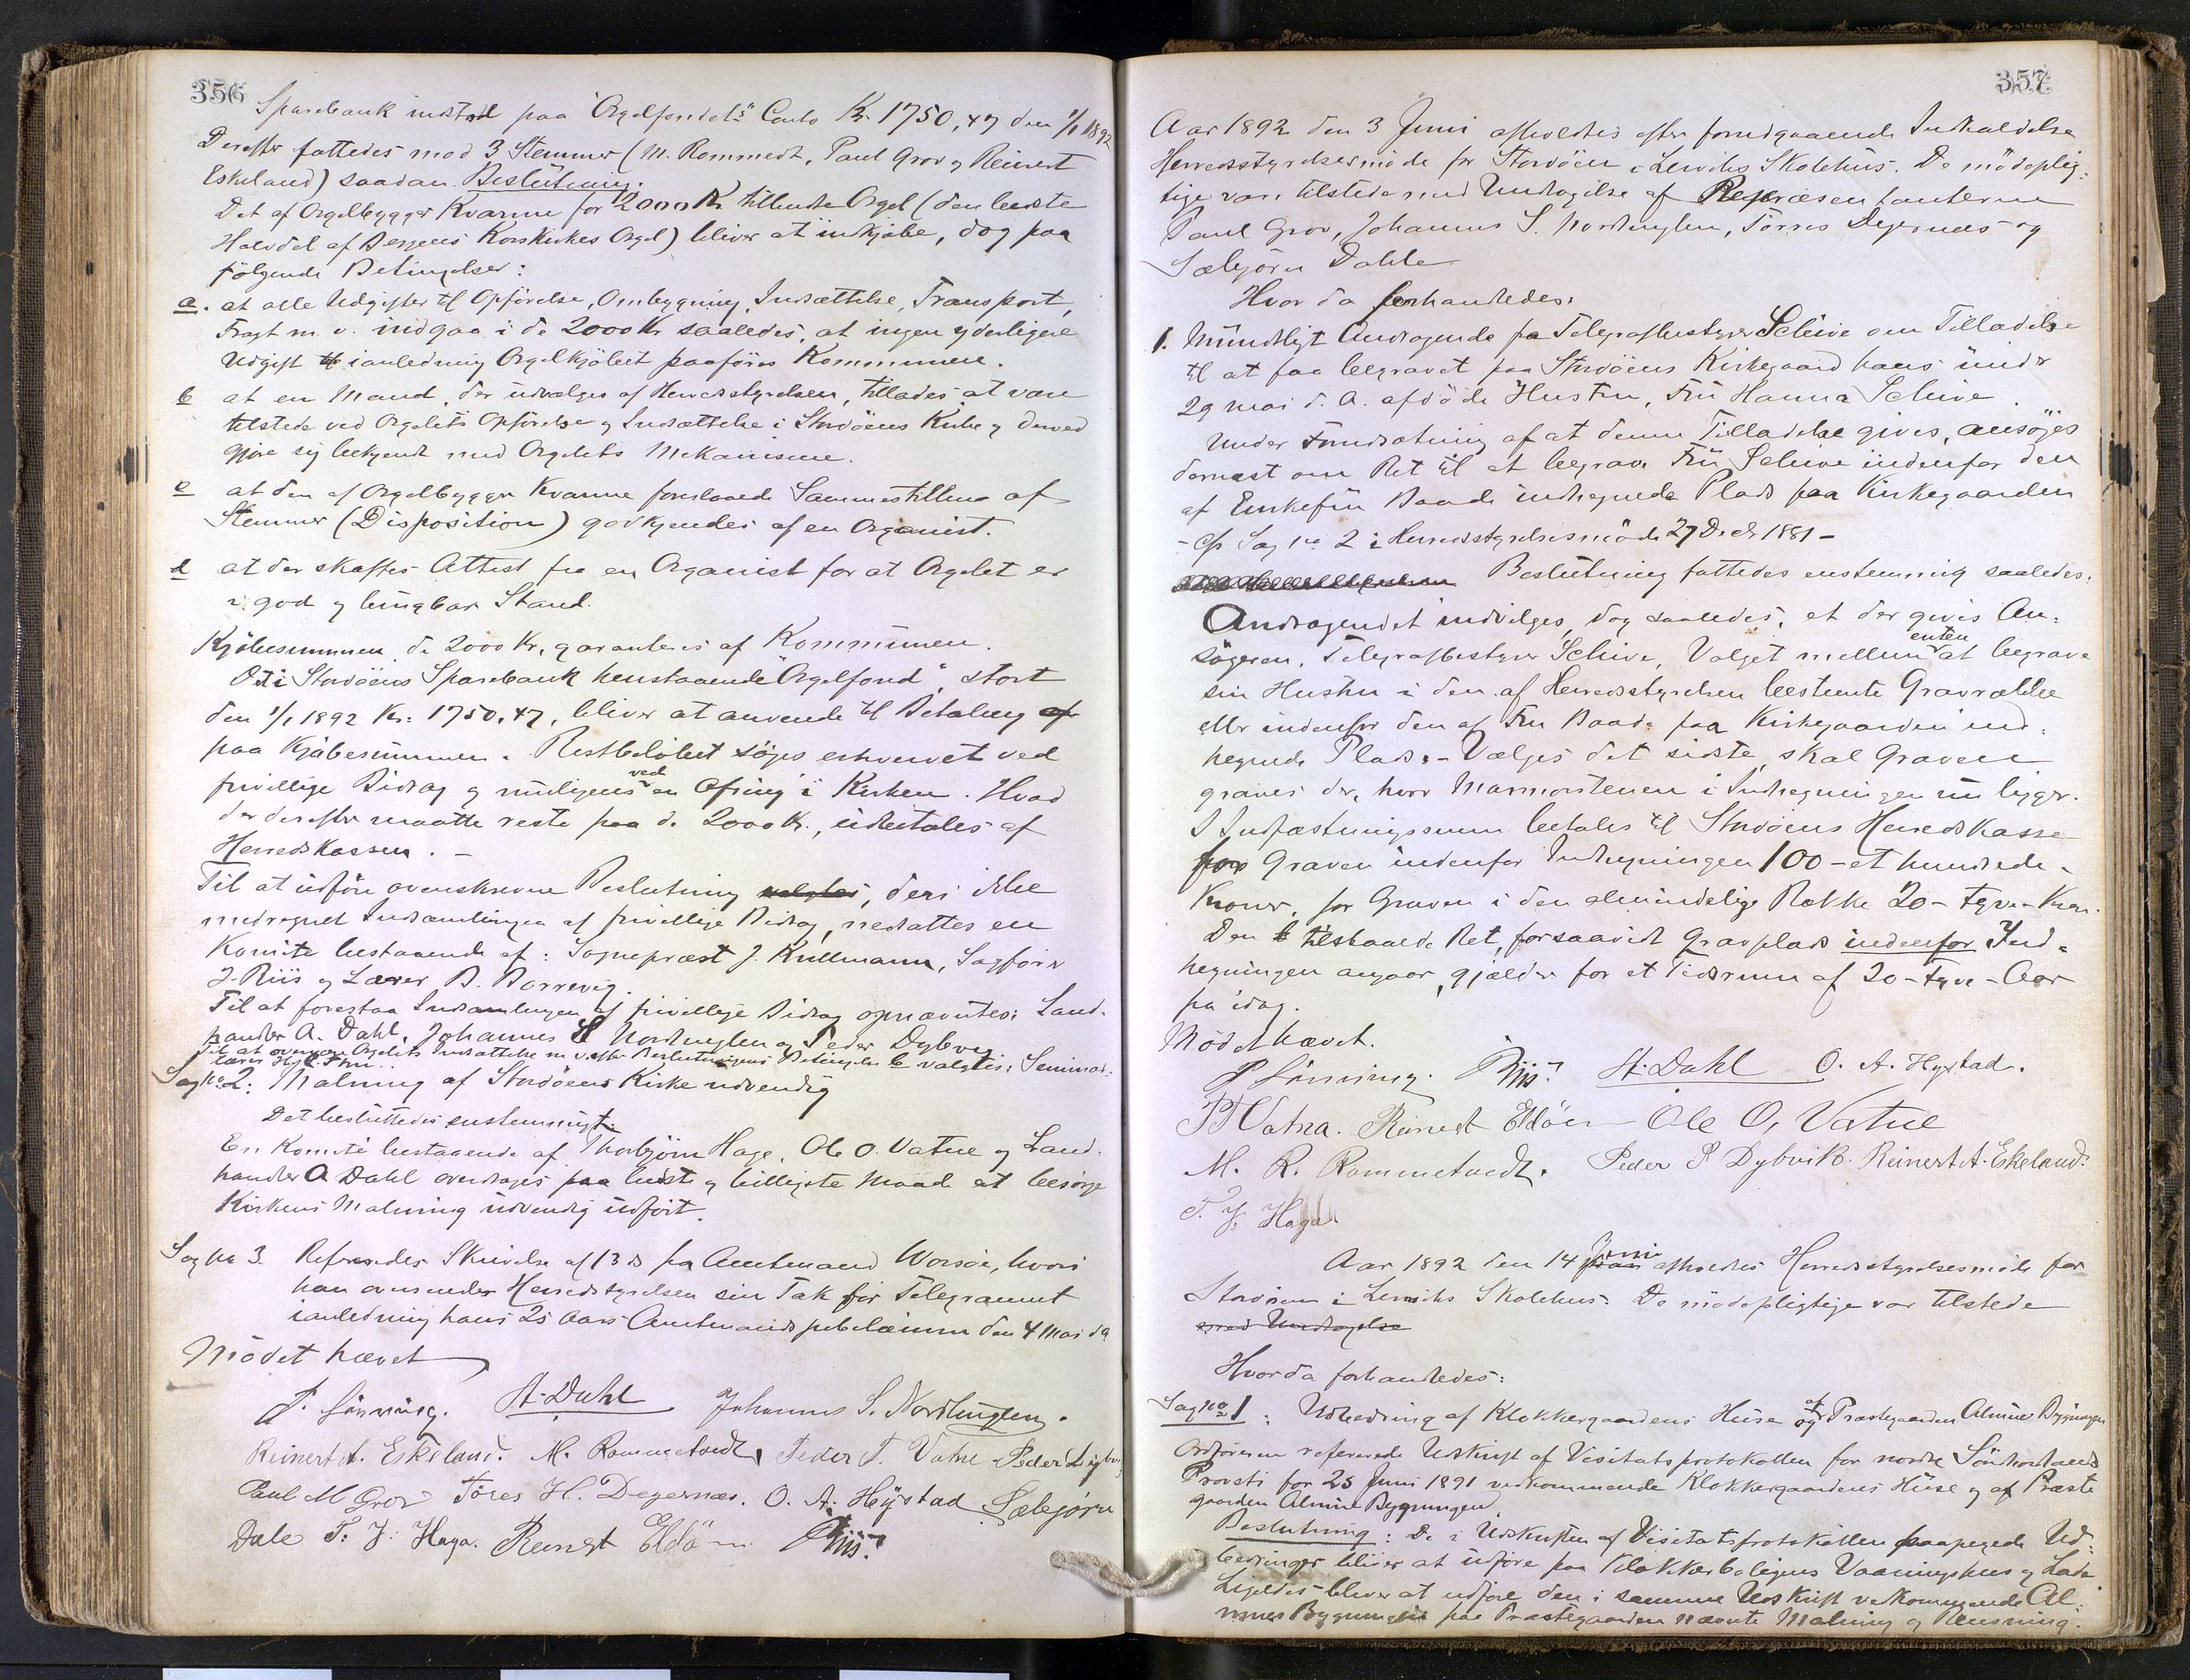 356
Sparebank indstod paa "Orgelfondets" Conto Kr. 1750,47 den 1/1 1892
Derefter fattedes mod 3 Stemmer (M. Rommedt, Paul Grov og Reinert
Eskeland) saadan Beslutning:
Det af Orgelbygger Kvarme for 2000 Kr tilbudte Orgel (den bedste
Halvdel af Bergens Korskirkes Orgel) bliver at indkjøbe, dog paa
følgende Betingelser:
a. at alle Udgifter til Opførelse, Ombygning, Indsættelse, Transport,
Fragt m. v. indgaa i de 2000 Kr saaledes, at ingen yderligere
Udgift i anledning Orgelkjøbet paaføres Kommunen.
b at en Mand, der udvælges af Herredsstyrelsen, tillades at være
tilstede ved Orgelets Opførelse og Indsættelse i Stordöens Kirke og derved
gjøre sig bekjendt med Orgelets Mekanisme.
c at den af Orgelbygger Kvarme foreslaaede Sammestilling af
Stemmer (Disposition) godkjendes af en Organist.
d at der skaffes Attest fra en Organist for at Orgelet er
i god og brugbar Stand.
Kjøbesummen, de 2000 Kr, garanteres af Kommunen.
Det i Stordöens Sparebank henstaaende "Orgelfond", stort
den 1/1 1892 Kr: 1750,47, bliver at anvende til Betaling af
paa Kjøbesummen. Restbeløbet søges erhvervet ved
frivillige Bidrag og muligens ved en Ofring i Kirken. Hvad
der derefter maatte reste paa de 2000 Kr., udbetales af
Herredskassen. -
Til at udføre ovenskrevne Beslutning valgtes, deri ikke
medregnet Indsamlingen af frivillige Bidrag, nedsattes en
Komite bestaaende af: Sognepræst J. Kullmann, Sagfører
J. Riis og Lærer B. Borrevig.
Til at forestaa Indsamlingen af frivillige Bidrag opnævntes: Land-
handler A. Dahl, Johannes S Nordhuglen og Peder Dybvig
Til at overvære Orgelets Indsættelse m. v. efter Beslutningens Betingelse b valgtes: Seminar-
lærer
Sag No 2: Malning af Stordöens Kirke udvendig
Det besluttedes enstemmigt:
En Komité bestaaende af Thorbjörn Hage, Ole O. Vatne og Land-
handler A Dahl overdrages paa bedste og billigste Maade at besørge
Kirkens Malning udvendig udført.
Sag No 3. Refereredes Skrivelse af 13 ds fra Amtmand Worsøe, hvori
han oversender Herredsstyrelsen sin Tak for Telegrammet
i anledning hans 25 Aars Amtmandsjubelæum den 4 Mai d.a.
Mödet hævet
P. Lönning. A. Dahl Johannes S. Nordhuglen.
Reinert A. Eskeland. M. Rommetvedt, Peder T. Vatne Peder Dybvig
Paul M Grov Töres H. Degernæs. O. A. Høystad Sæbjörn
Dale T. J. Haga. Reinert Eldöen Riis.
357
Aar 1892 den 3 Juni afholdtes efter forudgaaende Indkaldelse
Herredsstyrelsesmøde for Stordöen i Lerviks Skolehus. De mödeplig-
tige vare tilstede med Undtagelse af Repræsentanterne
Paul Grov, Johannes S. Nordhuglen, Törres Degernæs og
Sæbjörn Dahle
Hvor da forhandledes:
1. Mundtligt Andragende fra Telegrafbestyrer Schive om Tilladelse
til at faa begravet paa Stordöens Kirkegaard hans under
29 Mai d. A. afdöde Hustru, Fru Hanna Schive.
Under Forudsætning af at denne Tilladelse gives, ansöges
dernæst om Ret til at begrave Fru Schive indenfor den
af Enkefru Baade indhegnede Plads paa Kirkegaarden
- cfr Sag No 2 i Herredsstyrelsesmöde 27 Decbr 1881 -
Beslutning fattedes enstemmig saaledes:
Andragendet indvilges, dog saaledes, at der gives An-
søgeren, Telegrafbestyrer Schive, Valget mellem enten at begrave
sin Hustru i den af Herredsstyrelsen bestemte Gravrække
eller indenfor den af Fru Baade paa Kirkegaarden ind-
hegnede Plads. - Vælges det sidste, skal Graven
graves der, hvor Marmorstenen i Indhegningen nu ligger.
I Indfæstningssum betales til Stordöens Herredskasse
for Graven indenfor Indhegningen 100 - et hundrede -
Kroner, for Graven i den almindelige Række 20 - tyve - Kron.
Den tilstaaede Ret, forsaavidt Gravplads indenfor Ind-
hegningen angaar, gjælder for et Tidsrum af 20 - tyve - Aar
fra idag.
Mödet hævet.
P Lönning. Riis. A. Dahl O. A. Høystad.
P T Vatna. Reinert Eldöen Ole O, Vatne
M. R. Rommetvedt. Peder P Dybvik. Reinert A. Eskeland.
T. J. Haga.
Aar 1892 den 14 Juni afholdtes Herredsstyrelsesmöde for
Stordöen i Lerviks Skolehus. De mödepligtige var tilstede
med Undtagelse
Hvor da forhandledes:
Sag No 1: Udbedring af Klokkergaardens Huse og af Præstegaardens Almue Bygningen
Ordföreren refererede Udskrift af Visitatsprotokollen for nordre Söndhordlands
Provsti for 25 Juni 1891 vedkommende Klokkergaardens Huse og af Præste
gaarden Almue Bygningen.
Beslutning: De i Udskriften af Visitatsprotokollen paapegede Ud-
bedringer bliver at udføre paa Klokkerboligens Vaaningshus og Lade.
Ligeledes bliver at udføre den i samme Udskrift vedkommende Al-
mues Bygningen paa Præstegaarden nævnte Malning og Rensning.